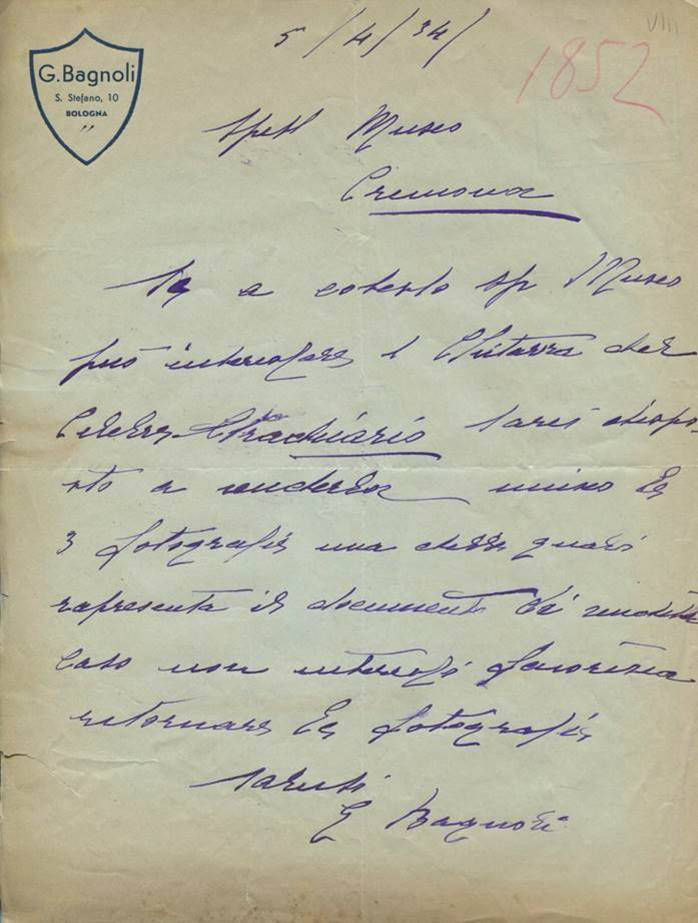 VIII
5/4/34/
1852
G. Bagnoli
S. Stefano, 10
BOLOGNA
Spett Museo
Cremona
Se a codesto sp. Museo
può interessare 1 Chitarra del
Celebre Stradivario sarei dispo-
sto a venderla unisco le
3 fotografie una delle quali
rapresenta il documento di vendita
caso non interessi favorisca
ritornare le fotografie
Saluti
G Bagnoli